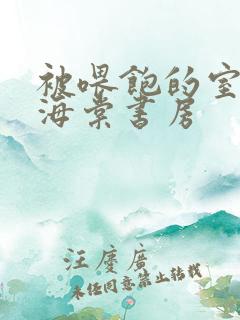 被喂饱的室
海棠书房
汪廖广
未经同意禁止转载